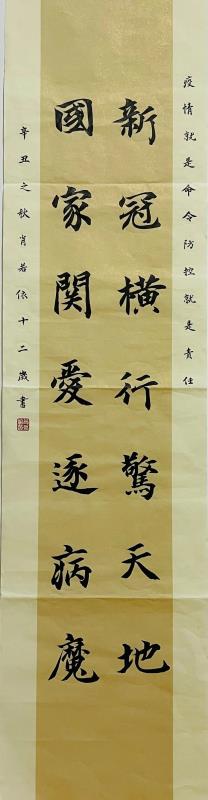 疫情就是命令防控就是責任
新冠橫行驚天地
國家関愛逐病魔
辛丑之秋肖若依十二歲書